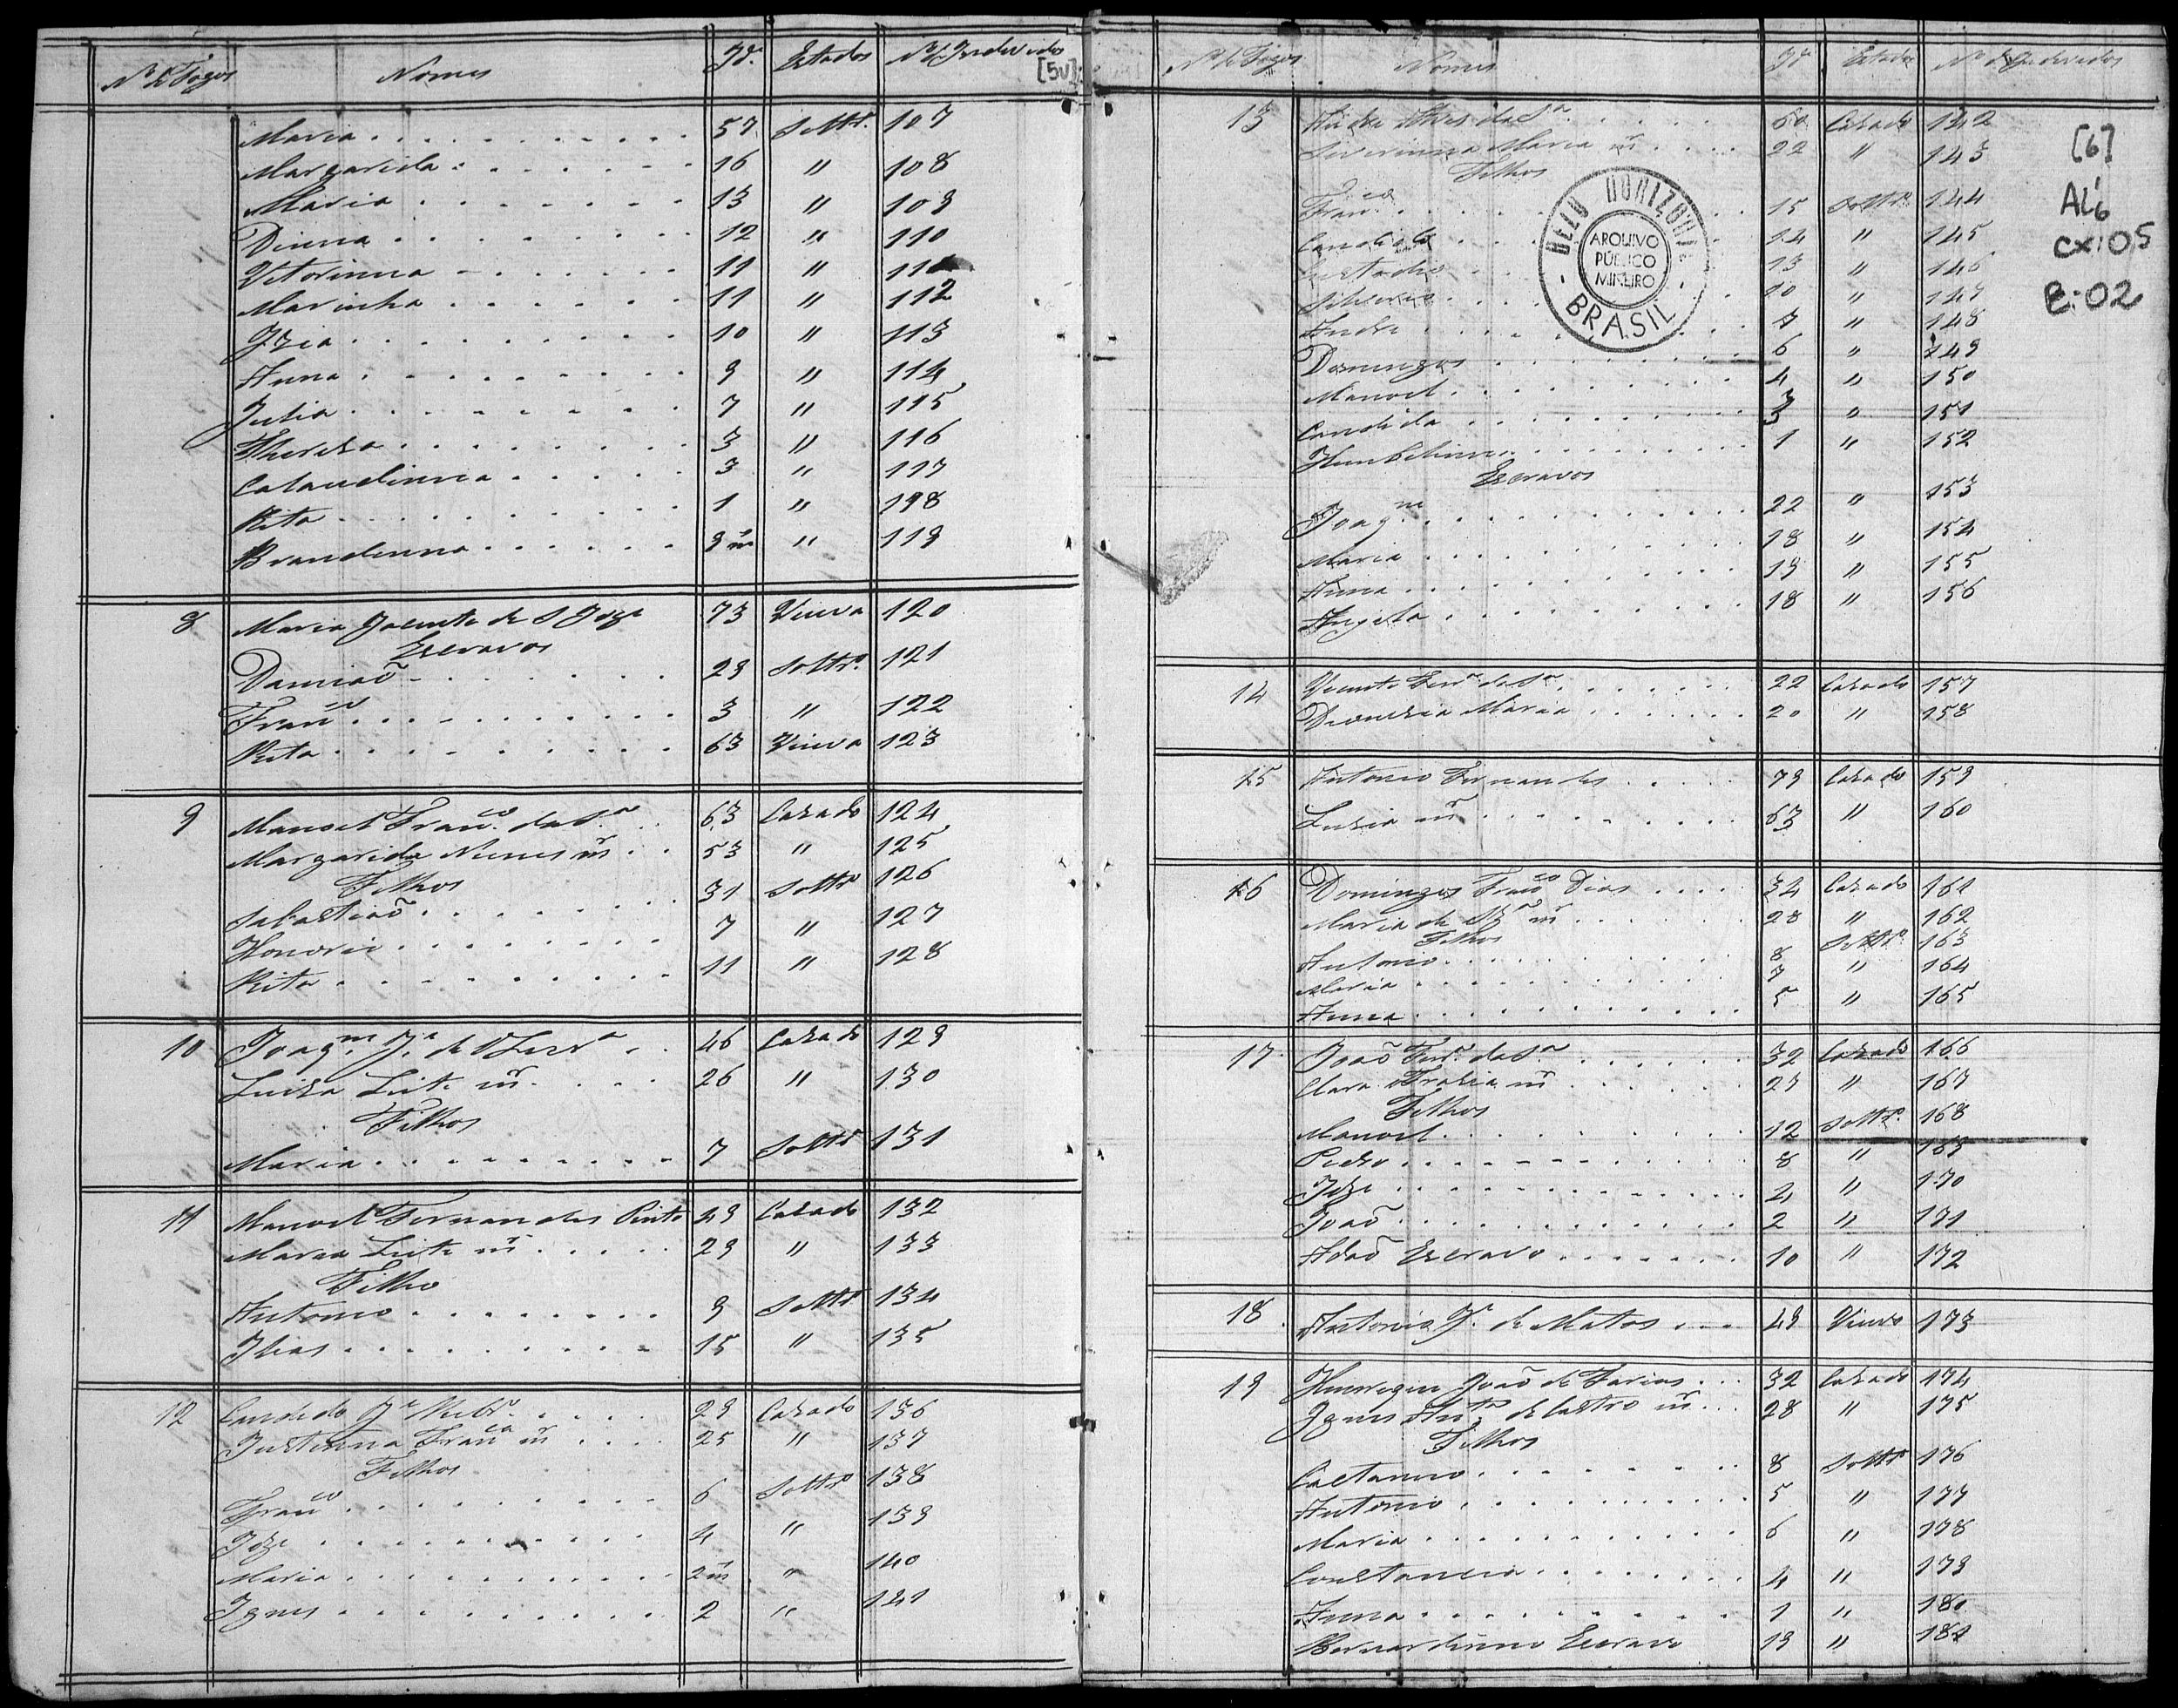 Nº de Fogos Nomes Id.e Estados Nº d Indevidos
[5v]
Maria 57 Soltrº 107
Margarida 16 " 108
Maria 13 " 109
Dinna 12 " 110
Vitorinna 11 " 111
Marinha 11 " 112
Izia 10 " 113
Anna 9 " 114
Julia 7 " 115
Thereza 3 " 116
Calaudinna 3 " 117
Rita 1 " 118
Brandinna 9 m 119
8 Maria Jacinta de S Joze 73 Viuva 120
Escravos
Damiaõ 29 Soltrº 121
Franco 3 " 122
Rita 63 Viuva 123
9 Manoel Franco da Sa 63 Cazado 124
Margarida Nunes mr 53 " 125
Filhos
Sabastiaõ 31 Soltrº 126
Honorio 7 " 127
Rita 11 " 128
10 Joaqm Je de 46 Cazado 129
Luiza Leite mr 26 " 130
Filhos
Maria 7 Soltrº 131
11 Manoel Fernandes Pinto 49 Cazado 132
Maria Leite mr 29 " 133
Filho
Antonio 9 Soltrº 134
Ilias 15 " 135
12 Candido Je Ribrº 29 Cazado 136
Justinna Franca mr 25 " 137
Filhos
Franco 6 Soltrº 138
Joze 4 " 139
Maria 2 m " 140
Ignes 2 " 141
Nº de Fogos Nomes Ide Estados Nº d Indevidos
13 Andre Alves da Sa 60 Cazado 142
Siverinna Maria mr 22 " 143
Filhos
Franco 15 Soltrº 144
Candido 14 " 145
Custodio 13 " 146
Silverio 10 " 147
Andre 7 " 148
Domingos 6 " 149
Manoel 4 " 150
Candida 3 " 151
Humbilinna 1 " 152
Escravos
Joaqm 22 " 153
Maria 18 " 154
Anna 19 " 155
Angela 18 " 156
14 Vicente Ferr.a da Sa 22 Cazado 157
Dionizia Maria 20 " 158
15 Antonio Fernandes 79 Cazado 159
Luzia mr 63 " 160
16 Domingos Franco Dias 34 Cazado 161
Maria de mr 28 " 162
Filhos
Antonio 8 Soltrº 163
Maria 7 " 164
Anna 5 " 165
17 Joaõ Ferr.a da Sa 32 Cazado 166
Clara mr 27 " 167
Filhos
Manoel 12 Soltrº 168
Pedro 8 " 169
Joze 4 " 170
Joaõ 2 " 171
Adaõ Escravo 10 " 172
18 Antonio Je de Matos 49 Viuvo 173
19 Henrique Joaõ de Farias 32 Cazado 174
Ignes Anta de Castro mr 28 " 175
Filhos
Caetanno 8 Soltrº 176
Antonio 5 " 177
Maria 6 " 178
Constancia 4 " 179
Anna 1 " 180
Bernardinno Escravo 19 " 181
BELO HORIZONTE
ARQUIVO
PÚBLICO
MINEIRO
- BRASIL -
[6]
cx:05
02